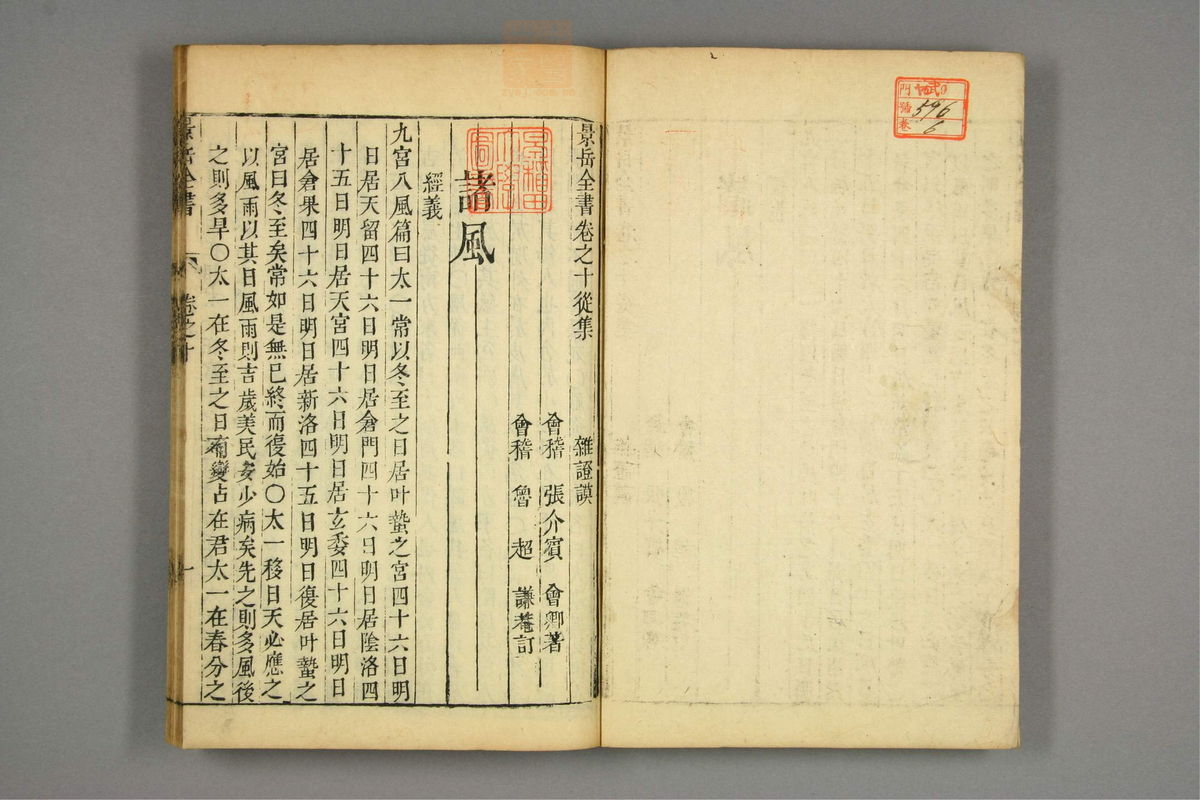 門 貳9
號 596
卷 6
景岳全書卷之十從集 雜證謨
會稽 張介賓 會卿著
會稽 魯超 謙菴訂
諸風
經義
九宮八風篇曰太一常以冬至之日居叶蟄之宮四十六日明
日居天留四十六日明日居倉門四十六日明日居陰洛四
十五日明日居天宮四十六日明日居玄委四十六日明日
居倉果四十六日明日居新洛四十五日明日復居叶蟄之
宮曰冬至矣常如是無已終而復始〇太一移日天必應之
以風雨以其日風雨則吉歲美民安少病矣先之則多風後
之則多旱〇太一在冬至之日有變占在君太一在春分之
景岳全書 卷之十 一